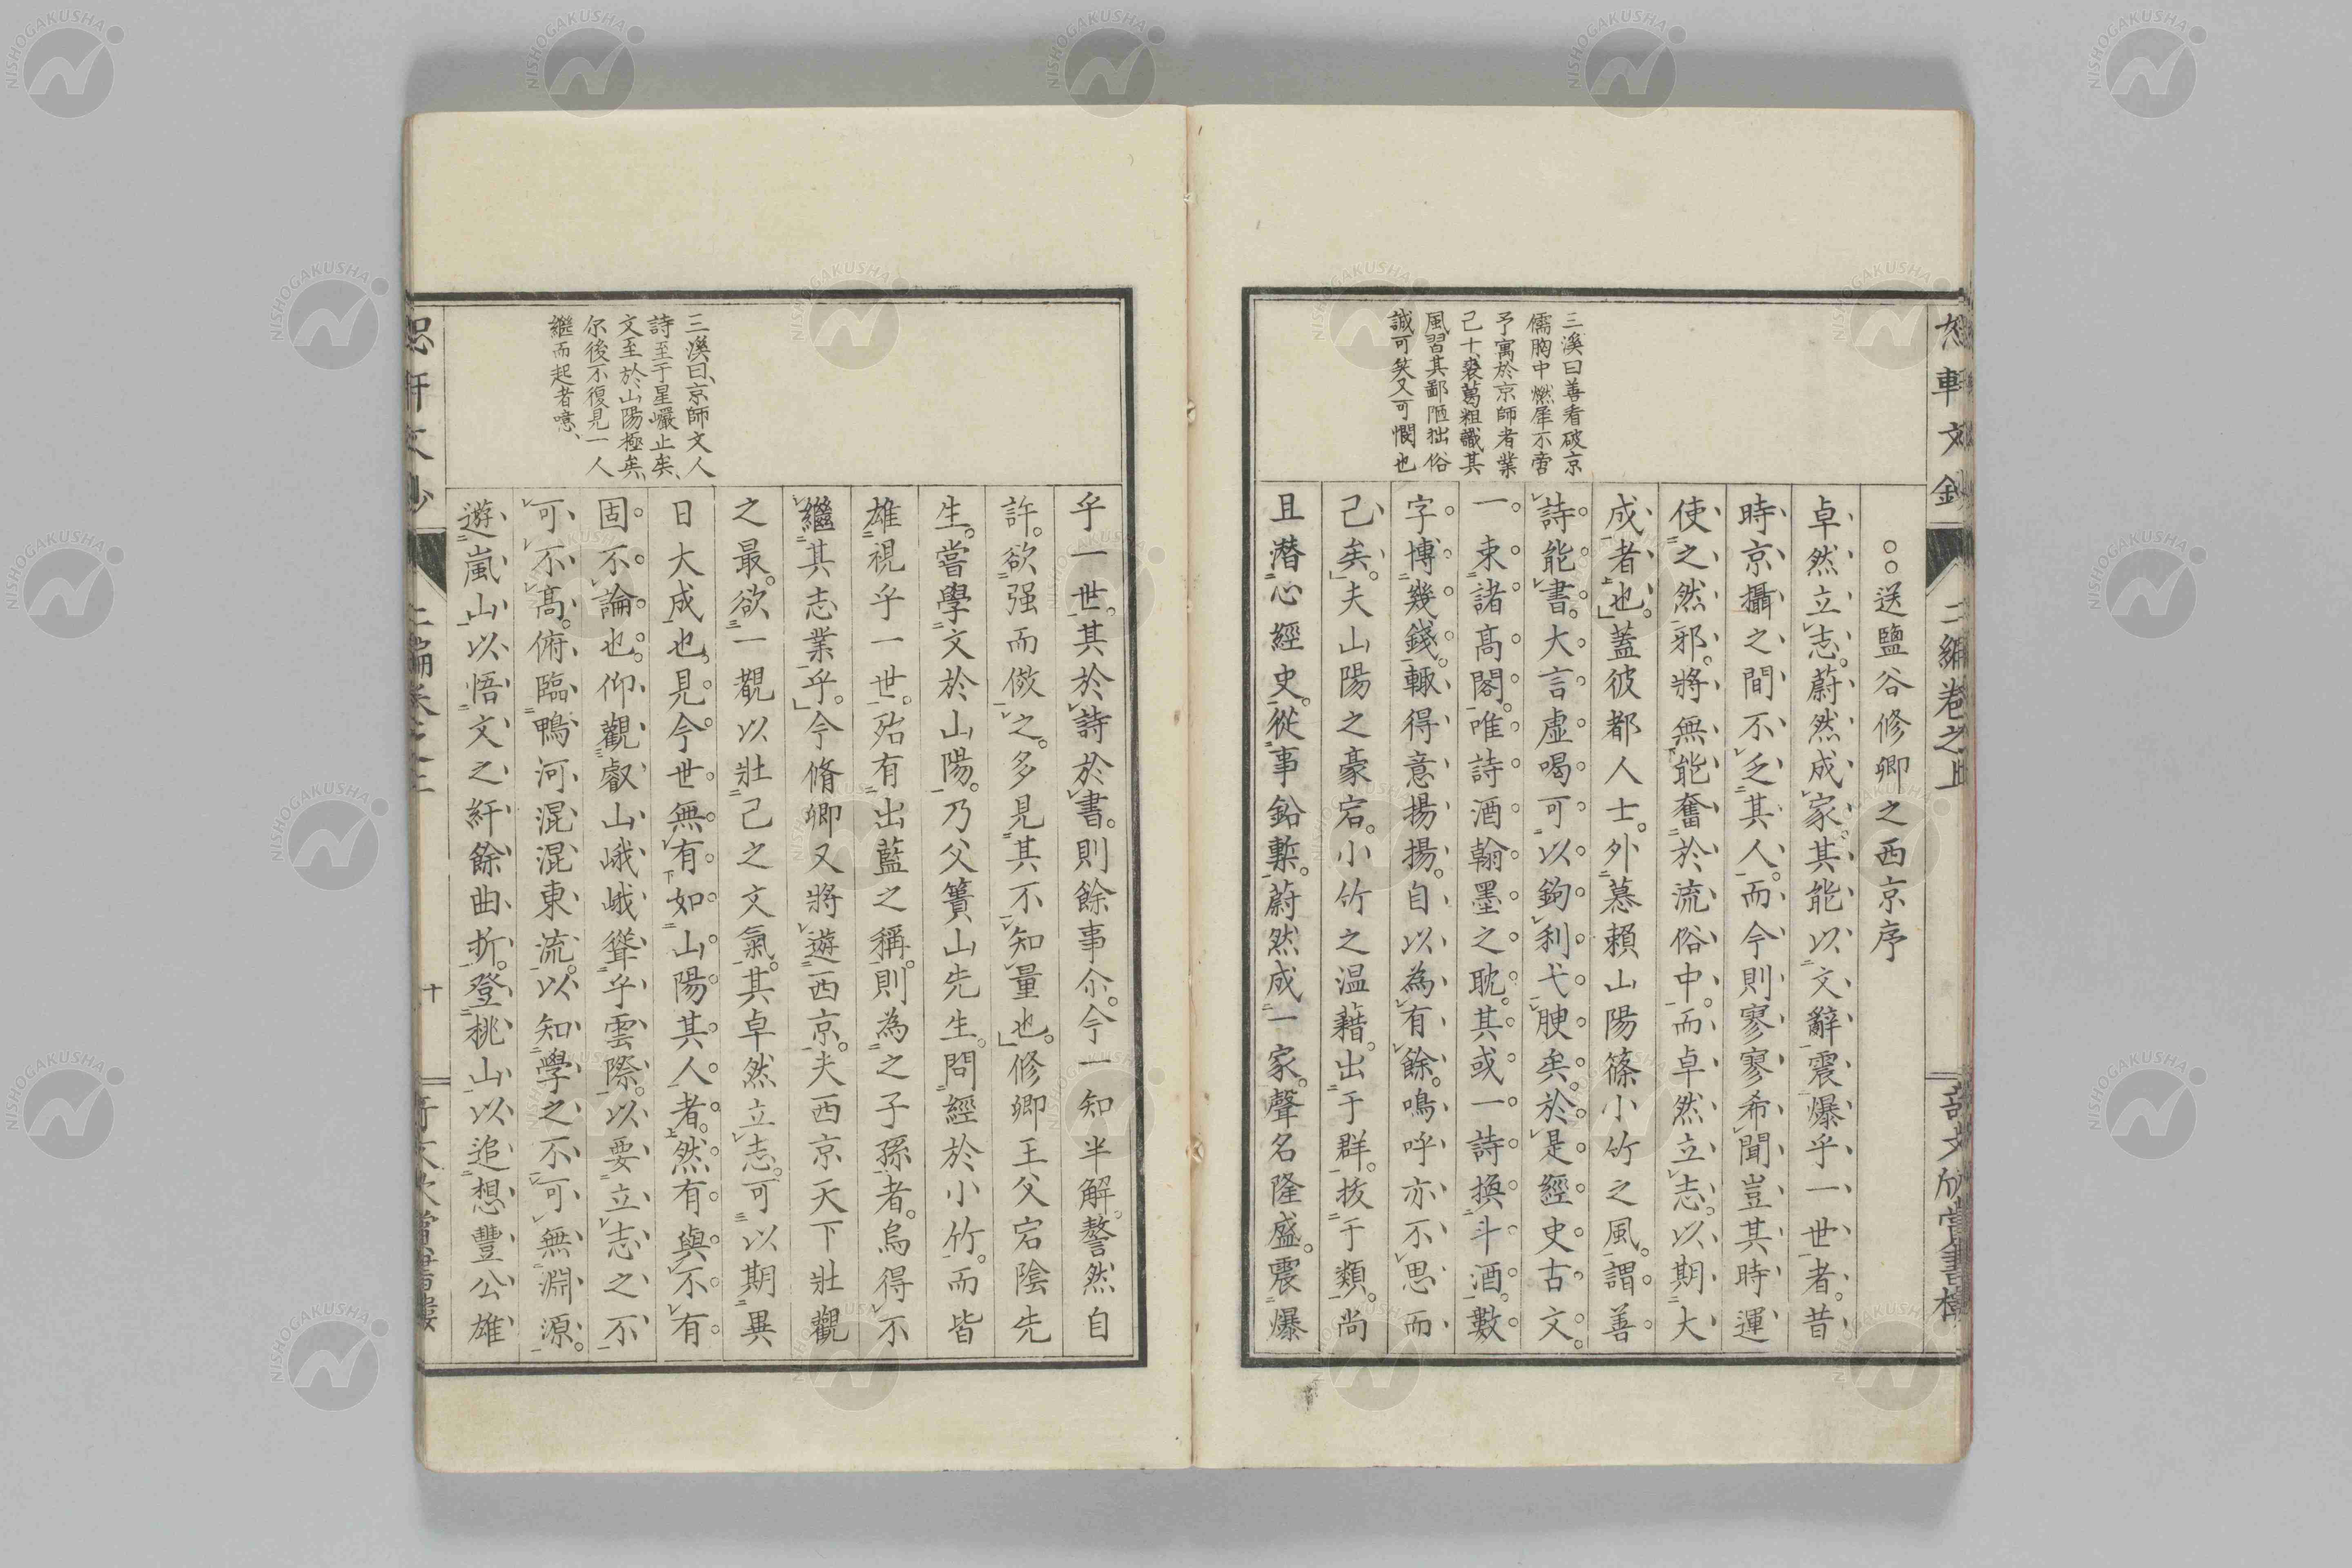 恕軒文鈔
二編卷之上
三溪曰善看破京
儒胸中燃犀不啻
予寓於京師者業
已十裘葛粗識其
風習其鄙陋拙俗
誠可笑又可憫也
○○送鹽谷修卿之西京序
卓然立志。蔚然成家。其能以文辭震爆乎一世者。昔
時京攝之間不乏其人。而今則寥寥希聞豈其時運
使之然邪。將無能奮於流俗中。而卓然立志。以期大
成者也。蓋彼都人士。外慕賴山陽篠小竹之風。謂善
詩能書。大言虛喝可以鉤利弋腴矣。於是經史古文。
一束諸高閣。唯詩酒翰墨之耽。其或一詩換斗酒。數
字博幾錢。輙得意揚揚。自以為有餘。嗚呼亦不思而
已矣。夫山陽之豪宕。小竹之温藉。出于群。抜于類。尚
且潜心經史。從事鉛槧。蔚然成一家。聲名隆盛。震爆
乎一世。其於詩於書。則餘事尒。今一知半解。謷然自
許。欲强而倣之。多見其不知量也。修卿王父宕陰先
生。嘗學文於山陽。乃父簣山先生。問經於小竹。而皆
雄視乎一世。殆有出藍之稱。則為之子孫者。烏得不
繼其志業乎。今脩卿又將遊西京。夫西京天下壯觀
之最。欲一觀以壯己之文氣。其卓然立志。可以期異
日大成也。見今世無有如山陽其人者。然有與不有
固不論也。仰觀叡山峨峨聳乎雲際。以要立志之不
可不高。俯臨鴨河混混東流。以知學之不可無淵源。
遊嵐山以悟文之紆餘曲折。登桃山以追想豐公雄
三溪曰、京師文人
詩至于星巖止矣、
文至於山陽極矣、
尒後不復見一人
繼而起者噫、
十